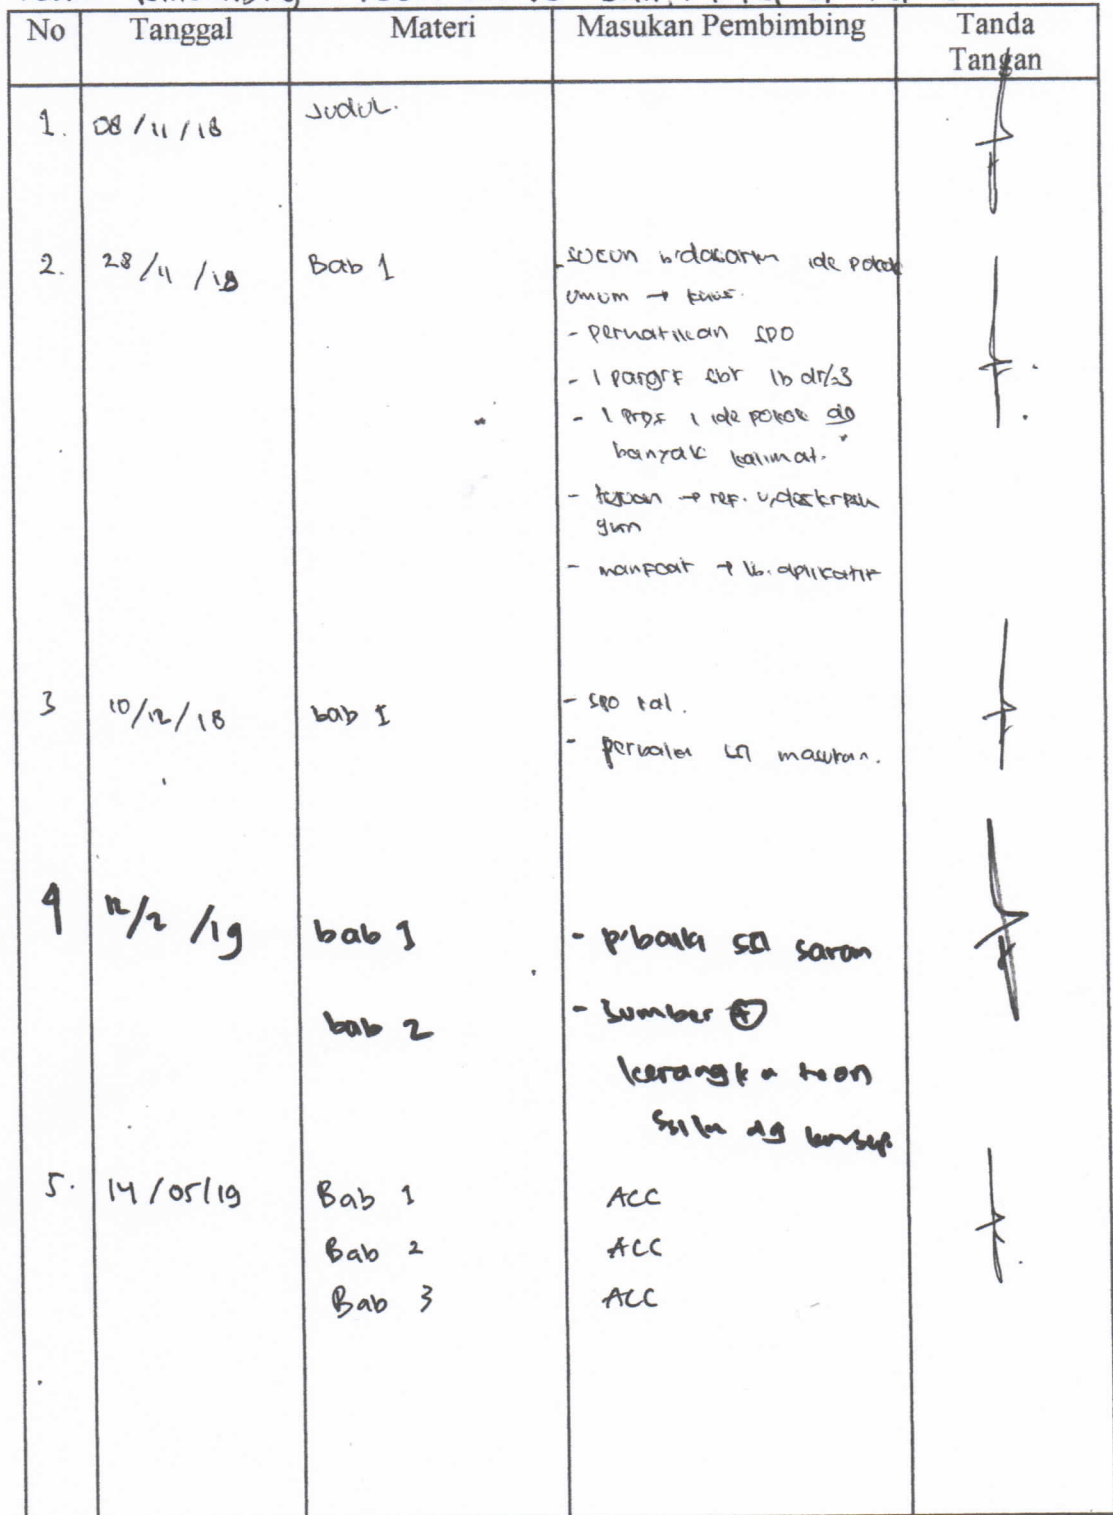 No Tanggal Materi Masukan Pembimbing Tanda Tangan
1. 08/11/18 Judul.
2. 28/11/18 Bab 1 - susun b'dasarkn ide pokok
umum → khus.
- perhatikan SPO
- 1 pargrf
- 1 prgf 1 ide pokok dg
banyak kalimat.
- tujuan → ref.
- manfaat → lb. aplikatif
3 10/12/18 bab 1 - SPO kal.
- masukan.
4 12/2/19 bab 1 - p'baiki saran
bab 2 - Sumber
kerangka teori
dg konsep.
5. 14/05/19 Bab 1 ACC
Bab 2 ACC
Bab 3 ACC